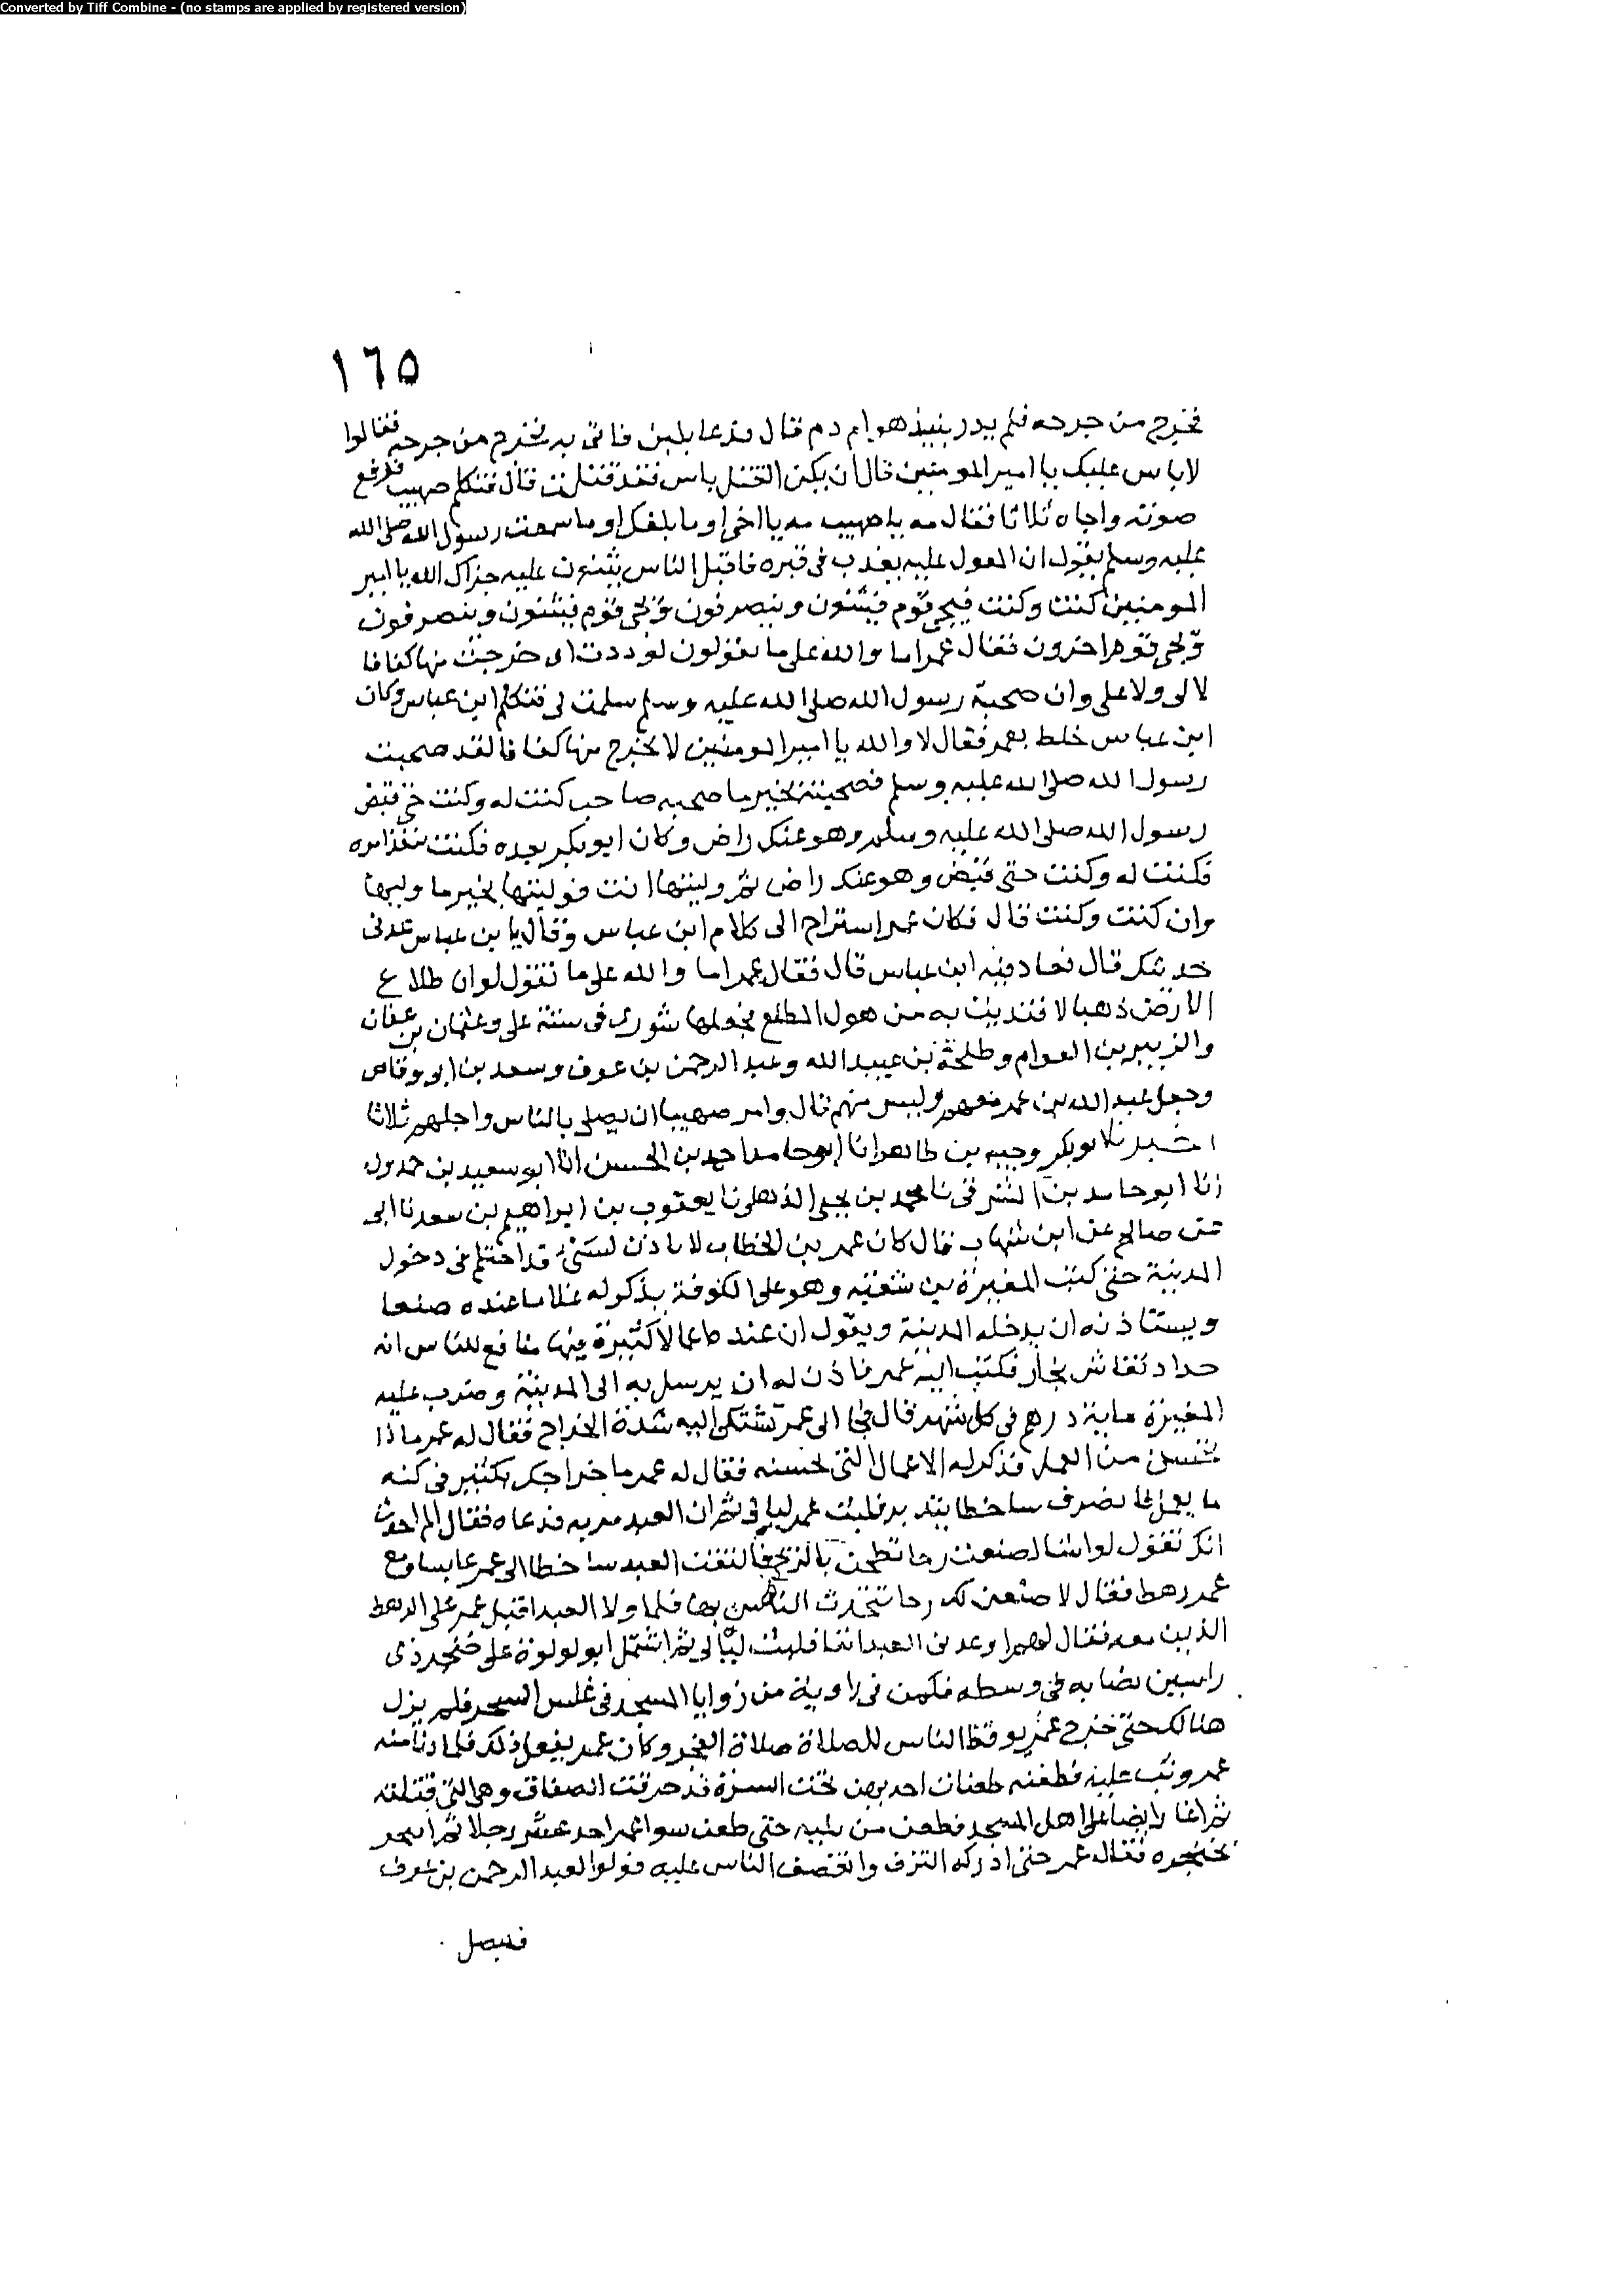 Converted by Tiff Combine - (no stamps are applied by registered version)
١٦٥
فخرج من جرحه فلم يدر نبيذ هو ام دم قال فدعا بلبن فاتى به فخرج من جرحه فقالوا
لا باس عليك يا امير المومنين قال ان يكن القتل باس فقد قتلت قال فتكلم صهيب فرفع
صوته واخاه ثلاثا فقال مه يا صهيب مه يا اخي او ما بلغك او ما سمعت رسول الله صلى الله
عليه وسلم يقول ان المعول عليه يعذب في قبره فاقبل الناس يثنون عليه جزاك الله يا امير
المومنين كنت وكنت فيجي قوم فيثنون وينصرفون ويجي قوم فيثنون وينصرفون
ويجي قوم اخرون فقال عمر اما والله على ما تقولون لوددت اني خرجت منها كفافا
لا لى ولا على وان صحبة رسول الله صلى الله عليه وسلم سلمت لى فتكلم ابن عباس وكان
ابن عباس خلط بعمر فقال لا والله يا امير المومنين لا تخرج منها كفافا لقد صحبت
رسول الله صلى الله عليه وسلم فصحبته بخير ما صحبه صاحب كنت له وكنت حتى قبض
رسول الله صلى الله عليه وسلم وهو عنك راض وكان ابو بكر بعده فكنت تنفذ امره
فكنت له وكنت حتى قبض وهو عنك راض ثم وليتها انت فوليتها بخير ما وليها
وان كنت وكنت قال فكان عمر استراح الى كلام ابن عباس وقال يا بن عباس عد في
حديثك قال فعاد فيه ابن عباس قال فقال عمر اما والله على ما تقول لو ان طلاع
الارض ذهبا لافتديت به من هول المطلع فجعلها شورى في ستة على وعثمان بن عفان
والزبير بن العوام وطلحة بن عبيد الله وعبد الرحمن بن عوف وسعد بن ابو وقاص
وجعل عبد الله بن عمر معهم وليس منهم قال وامر صهيبا ان يصلى بالناس واجلهم ثلاثا
اخبرنا ابو بكر وجيه بن طاهر انا ابو حامد احمد بن الحسن انا ابو سعيد بن حمدون
انا ابو حامد بن الشرقى نا محمد بن يحيى الذهلى نا يعقوب بن ابراهيم بن سعد نا ابى
عن صالح عن ابن شهاب قال كان عمر بن الخطاب لا ياذن لسبى قد احتلم في دخول
المدينة حتى كتب المغيرة بن شعبة وهو على الكوفة يذكر له غلاما عنده صنعا
ويستاذنه ان يدخله المدينة ويقول ان عنده اعمالا كثيرة فيها منافع للناس انه
حداد نقاش نجار فكتب اليه عمر فاذن له ان يرسل به الى المدينة وضرب عليه
المغيرة ماية درهم في كل شهر قال فجا الى عمر يشتكى اليه شدة الخراج فقال له عمر ماذا
تحسن من العمل فذكر له الاعمال التي يحسنه فقال له عمر ما خراجك بكثير في كنه
ما يعمل فانصرف ساخطا يتذمر فلبث عمر ليالى ثم ان العبد مر به فدعاه فقال الم احدث
انك تقول لو اشا لصنعت رحا تطحن بالريح فالتفت العبد ساخطا الى عمر عابسا ومع
عمر رهط فقال لاصنعن لك رحا يتحدث الناس بها فلما ولا العبد اقبل عمر على الرهط
الذين معه فقال لهم اوعدنى العبد انفا فلبث ليالى ثم اشتمل ابو لولوة على خنجر ذى
راسين نصابه في وسطه فكمن في زاوية من زوايا المسجد في غلس السحر فلم يزل
هنالك حتى خرج عمر يوقظ الناس للصلاة صلاة الفجر وكان عمر يفعل ذلك فلما دنا منه
عمر وثب عليه فطعنه طعنات احديهن تحت السرة قد خرقت الصفاق وهى التي قتلته
ثم اغار ايضا على اهل المسجد فطعن من يليه حتى طعن سوا عمر احد عشر رجلا ثم انتحر
بخنجره فقال عمر حتى ادركه النزف وانقصف الناس عليه قولوا لعبد الرحمن بن عوف
فليصل